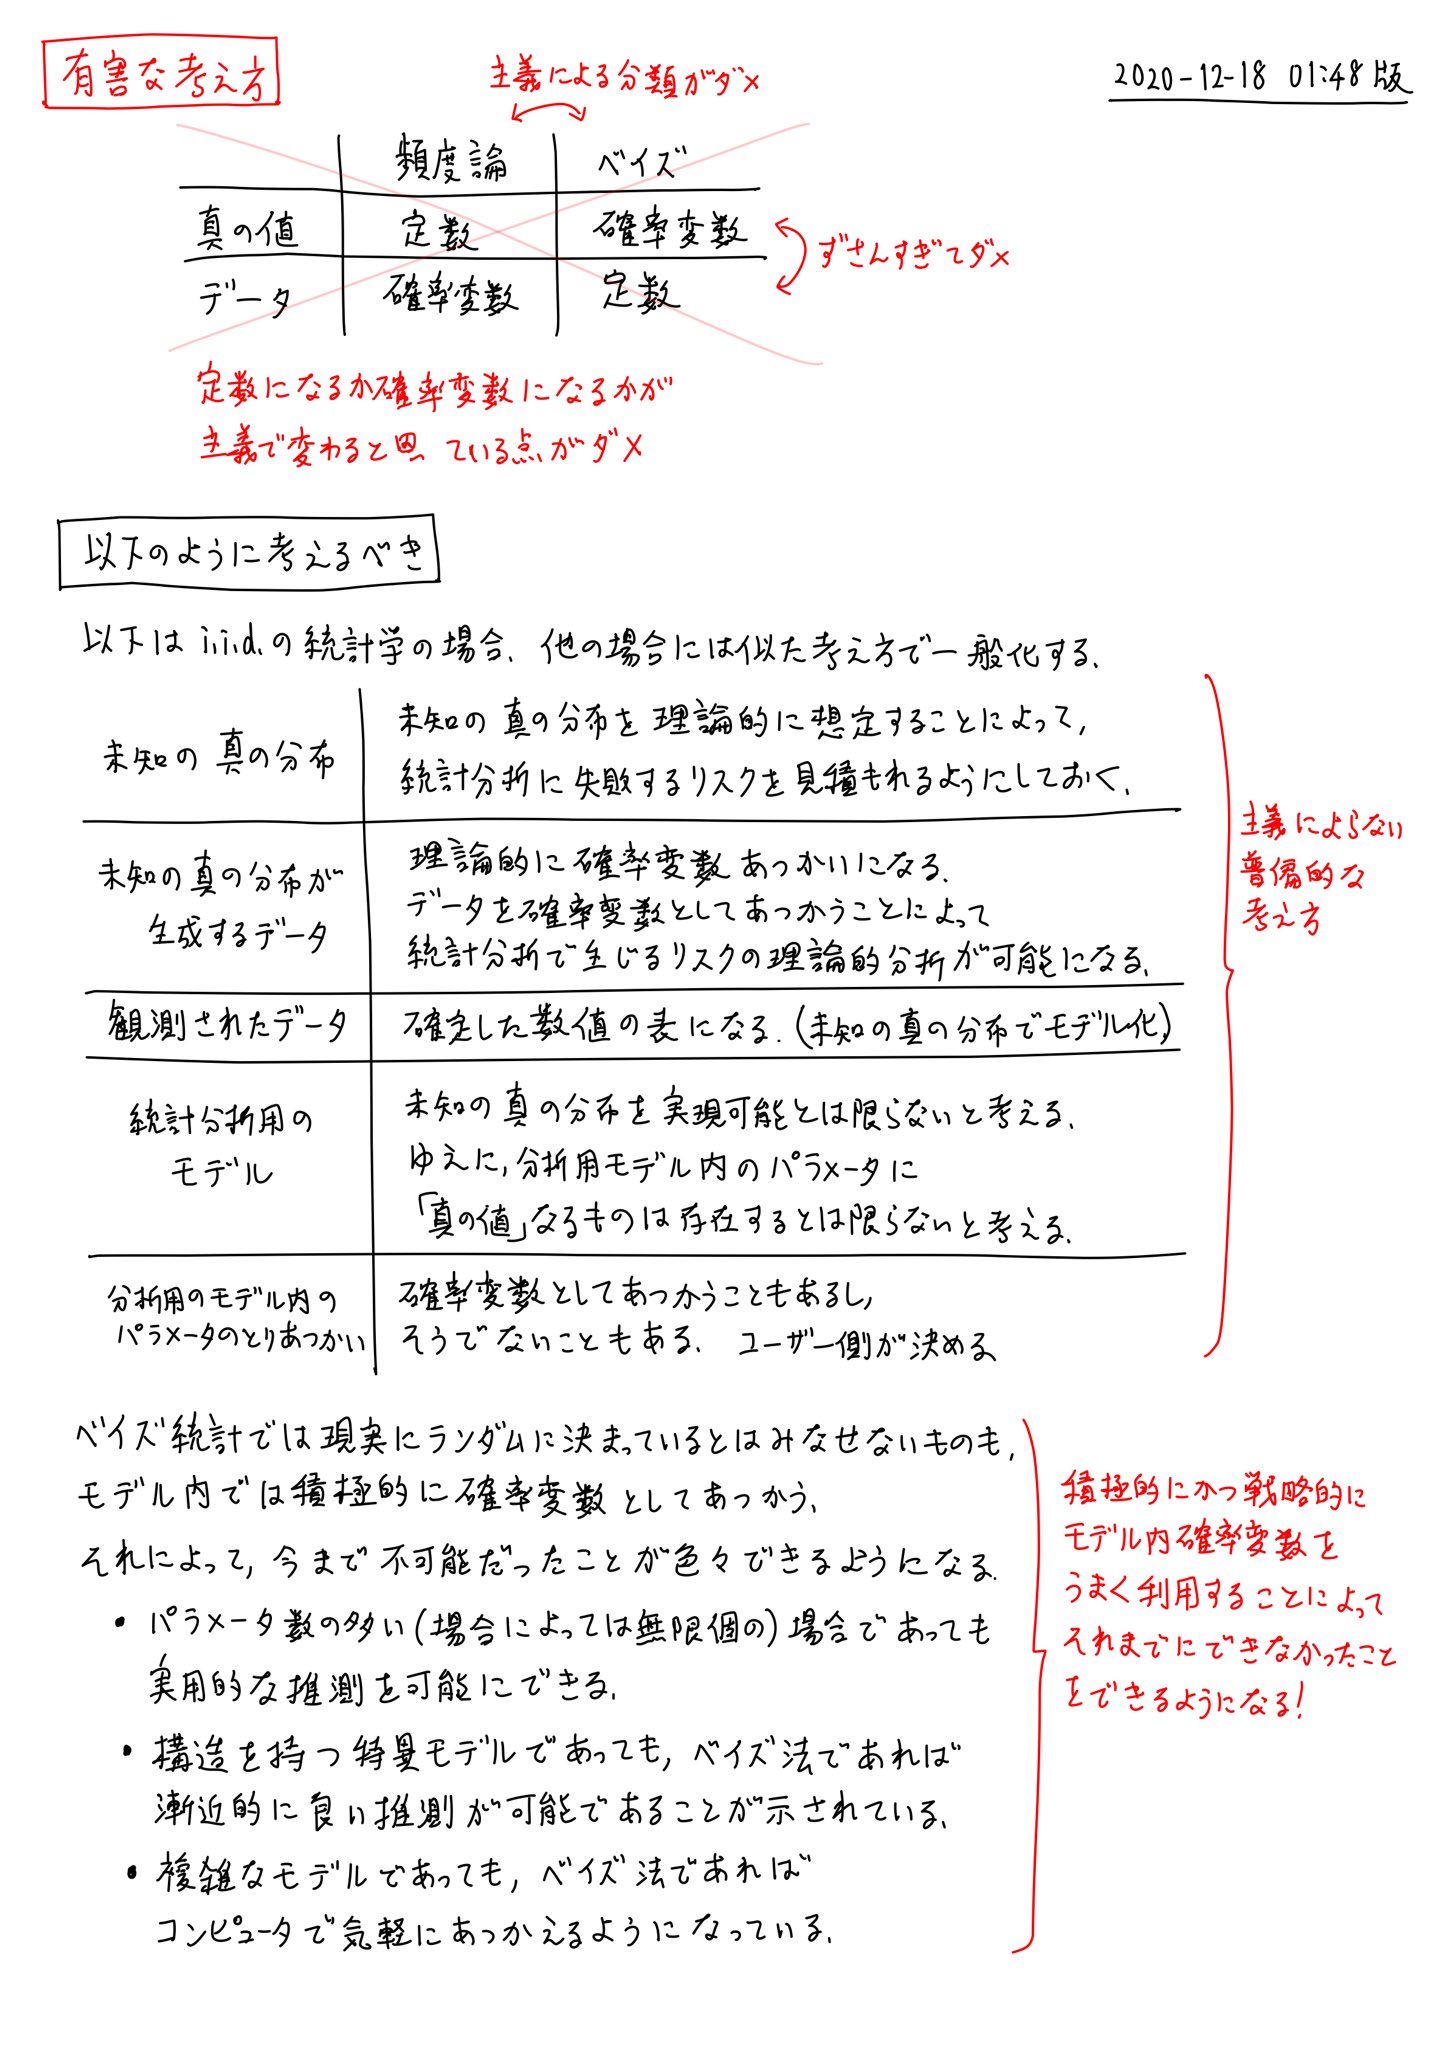 有害な考え方
主義による分類がダメ
2020-12-18 01:48版
頻度論 ベイズ
真の値 定数 確率変数
データ 確率変数 定数
ずさんすぎてダメ
定数になるか確率変数になるかが
主義で変わると思っている点がダメ
以下のように考えるべき
以下はi.i.d.の統計学の場合. 他の場合には似た考え方で一般化する.
未知の真の分布
未知の真の分布を理論的に想定することによって,
統計分析に失敗するリスクを見積もれるようにしておく.
未知の真の分布が
生成するデータ
理論的に確率変数あつかいになる.
データを確率変数としてあつかうことによって
統計分析で生じるリスクの理論的分析が可能になる.
観測されたデータ
確定した数値の表になる. (未知の真の分布でモデル化)
統計分析用の
モデル
未知の真の分布を実現可能とは限らないと考える.
ゆえに, 分析用モデル内のパラメータに
「真の値」なるものは存在するとは限らないと考える.
分析用のモデル内の
パラメータのとりあつかい
確率変数としてあつかうこともあるし,
そうでないこともある. ユーザー側が決める.
主義によらない
普偏的な
考え方
ベイズ統計では現実にランダムに決まっているとはみなせないものも,
モデル内では積極的に確率変数としてあつかう.
それによって, 今まで不可能だったことが色々できるようになる.
• パラメータ数の多い(場合によっては無限個の)場合であっても
実用的な推測を可能にできる.
• 構造を持つ特異モデルであっても, ベイズ法であれば
漸近的に良い推測が可能であることが示されている.
• 複雑なモデルであっても, ベイズ法であれば
コンピュータで気軽にあつかえるようになっている.
積極的にかつ戦略的に
モデル内確率変数を
うまく利用することによって
それまでにできなかったこと
をできるようになる!